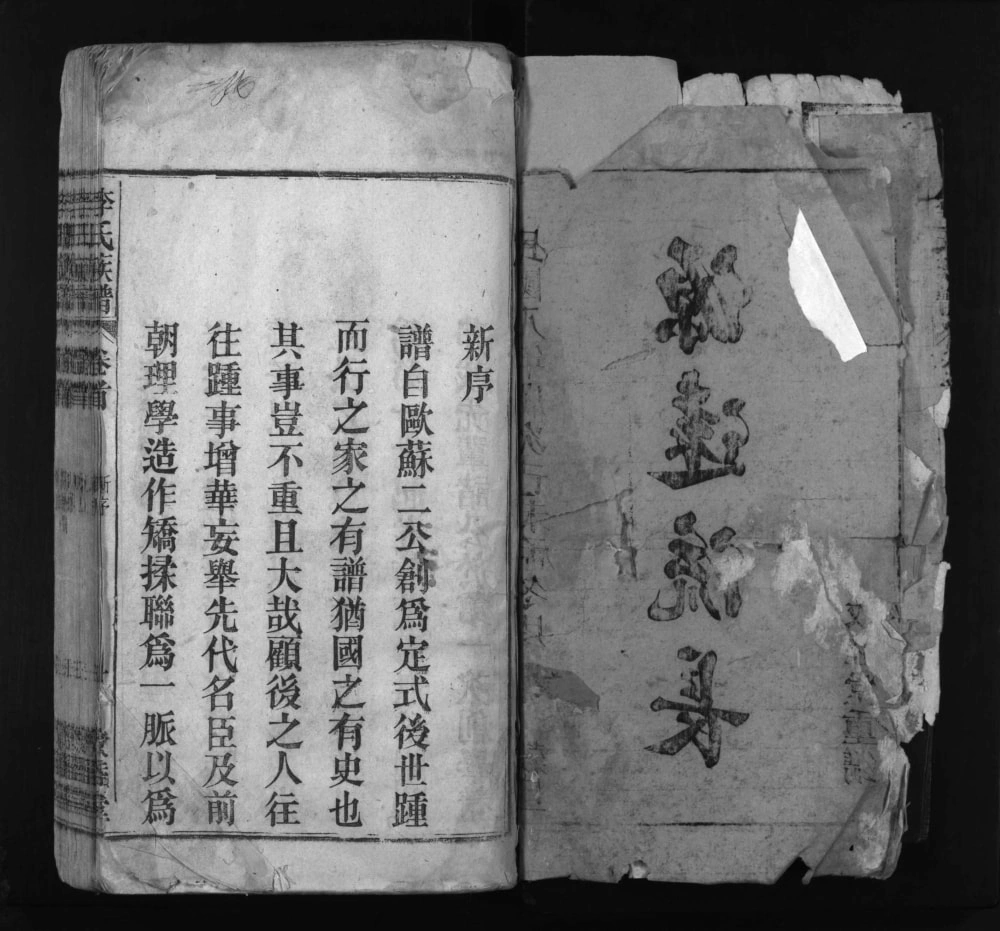 源遠流長
新序
譜自歐蘇二公創爲定式後世踵
而行之家之有譜猶國之有史也
其事豈不重且大哉顧後之人往
往踵事增華妄舉先代名臣及前
朝理學造作矯揉聯爲一脈以爲
李氏族譜 卷首 新序